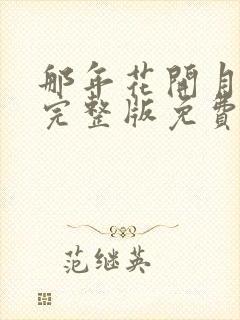 那年花開月
完整版免費
范继英